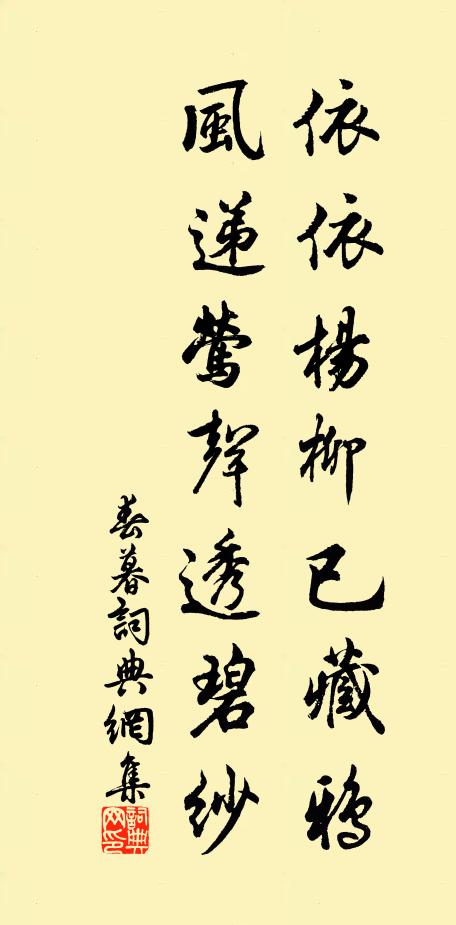 依依楊柳已藏鴉
風遞鶯聲透碧紗
春暮詞典網集
詞典网印